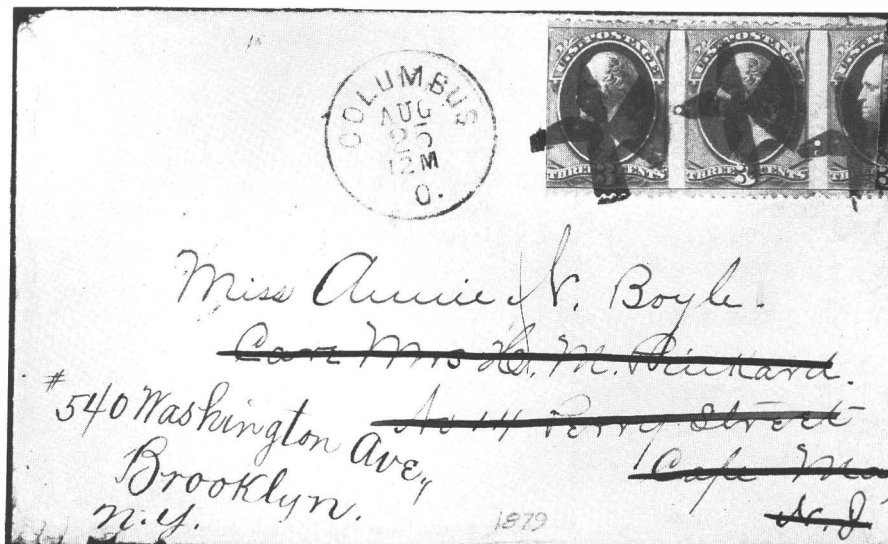 COLUMBUS
AUG
25
12 M
O.
U.S. POSTAGE
THREE CENTS
3
U.S. POSTAGE
THREE CENTS
3
Miss Annie N. Boyle.
Care Mrs H. M.
No 14 Perry Street
Cape Ma
N.J
# 540 Washington Ave,
Brooklyn.
N.Y.
1879